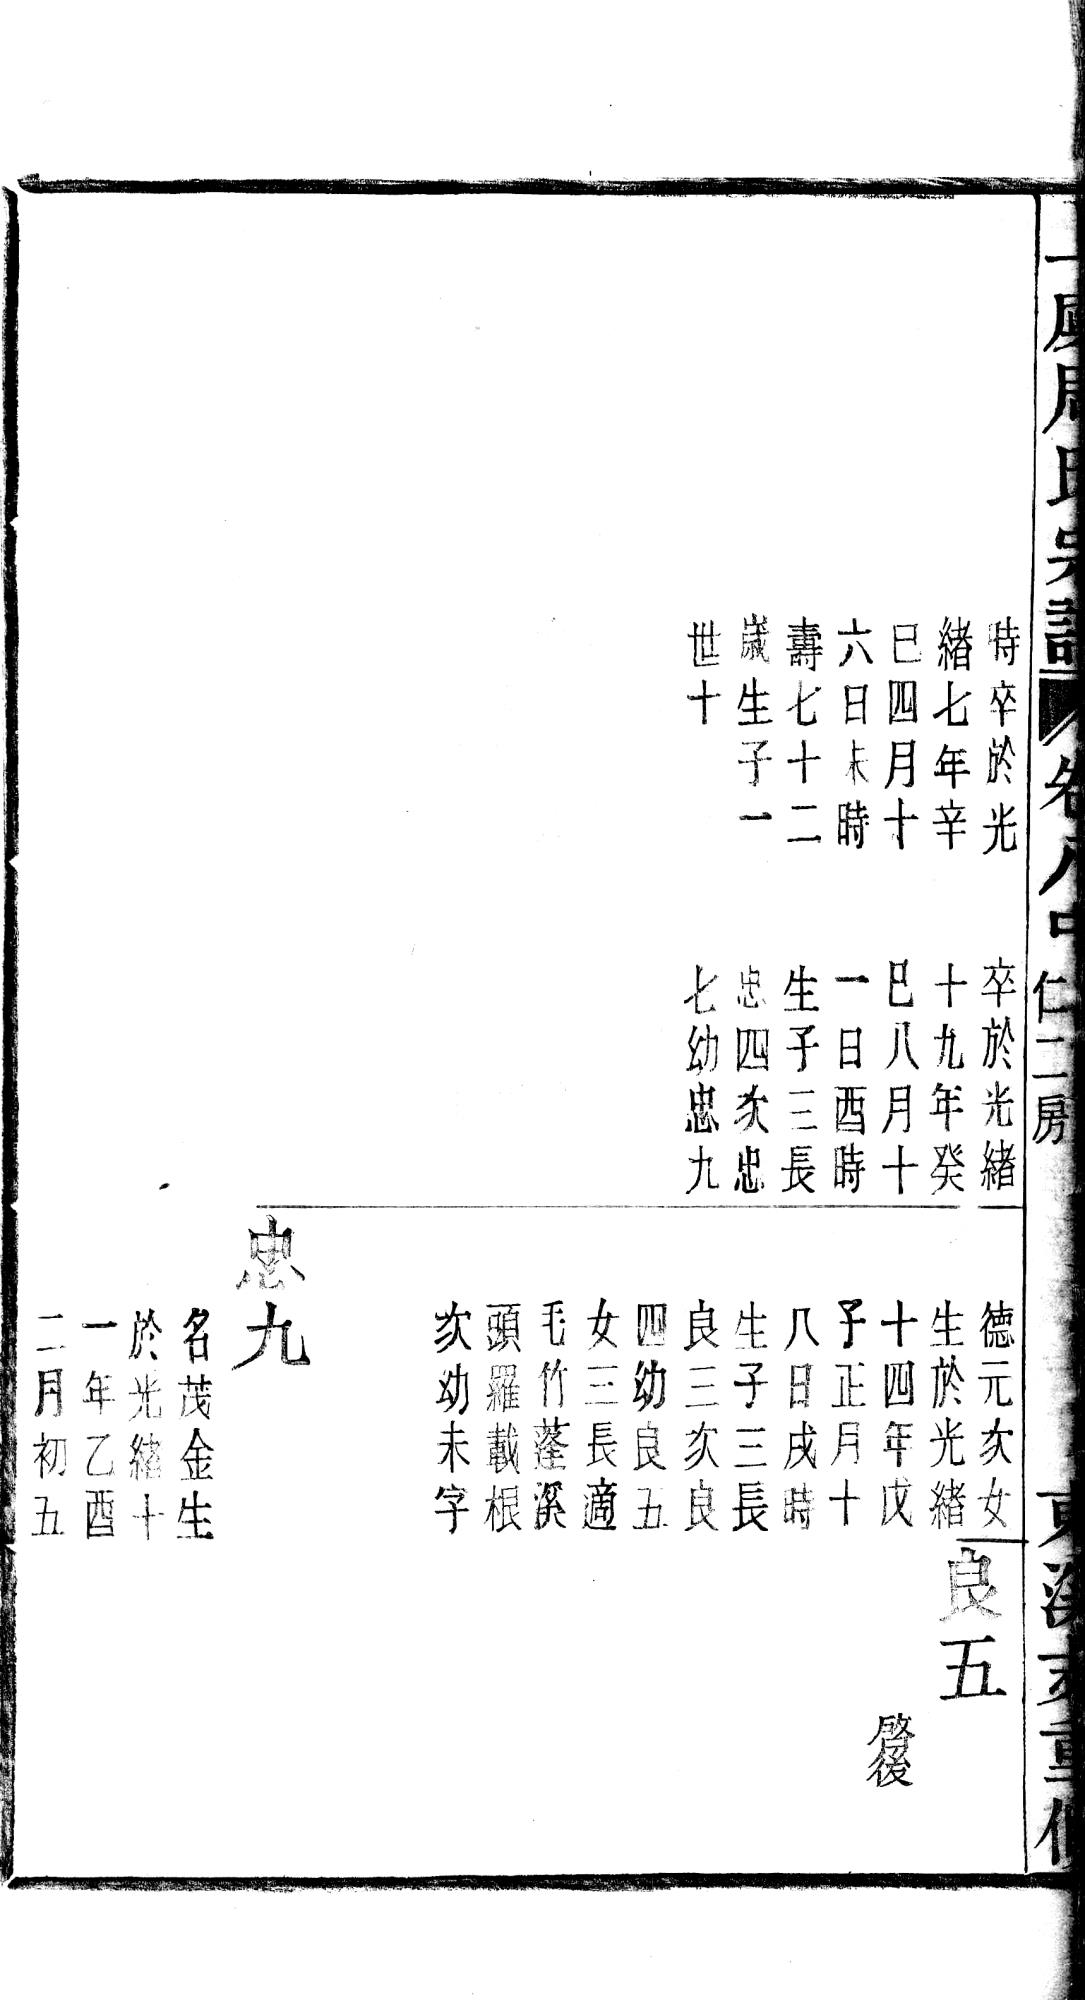 周氏宗譜
卷八中
仁二房
重修
時卒於光
緒七年辛
巳四月十
六日未時
壽七十二
歲生子一
世十
卒於光緒
十九年癸
巳八月十
一日酉時
生子三長
忠四次忠
七幼忠九
德元次女
生於光緒
十四年戊
子正月十
八日戌時
生子三長
良三次良
四幼良五
女三長適
毛竹蓬溪
頭羅載根
次幼未字
忠九
名茂金生
於光緒十
一年乙酉
二月初五
良五
啓後